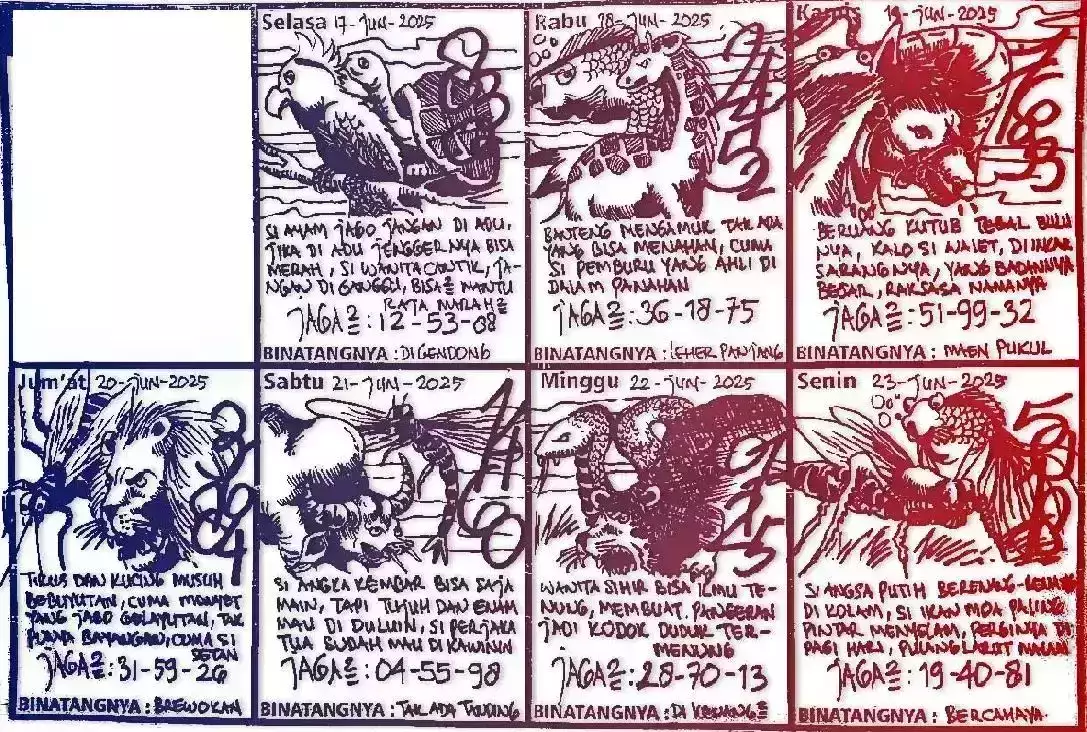 Selasa 17-JUN-2025
SI AYAM JAGO JANGAN DI ADU,
JIKA DI ADU JENGGERNYA BISA
MERAH, SI WANITA CANTIK, JA-
NGAN DI GANGGU, BISA2 MANTU
RATA MARAH2
JAGA2: 12-53-08
BINATANGNYA: DIGENDONG
Rabu 18-JUN-2025
BANTENG MENGAMUK TAK ADA
YANG BISA MENAHAN, CUMA
SI PEMBURU YANG AHLI DI
DALAM PANAHAN
JAGA2: 36-18-75
BINATANGNYA: LEHER PANJANG
Kamis 19-JUN-2025
BERUANG KUTUB TEBAL BULU
NYA, KALO SI WALET, DIINCAR
SARANGNYA, YANG BADANNYA
BESAR, RAKSASA NAMANYA
JAGA2: 51-99-32
BINATANGNYA: MAEN PUKUL
Jum'at 20-JUN-2025
TIKUS DAN KUCING MUSUH
BEBUYUTAN, CUMA MONYET
YANG JAGO GELAYUTAN, TAK
PUNYA BAYANGAN, CUMA SI
SETAN
JAGA2: 31-59-26
BINATANGNYA: BREWOKAN
Sabtu 21-JUN-2025
SI ANGKA KEMBAR BISA SAJA
MAIN, TAPI TUJUH DAN ENAM
MAU DI DULUIN, SI PERJAKA
TUA SUDAH MAU DI KAWININ
JAGA2: 04-55-98
BINATANGNYA: TAK ADA TANDING
Minggu 22-JUN-2025
WANITA SIHIR BISA ILMU TE-
NUNG, MEMBUAT PANGERAN
JADI KODOK DUDUK TER-
MENUNG
JAGA2: 28-70-13
BINATANGNYA: DI KENANG2
Senin 23-JUN-2025
SI ANGSA PUTIH BERENANG-RENANG
DI KOLAM, SI IKAN MOA PALING
PINTAR MENYELAM, PERGINYA DI
PAGI HARI, PULANG LARUT MALAM
JAGA2: 19-40-81
BINATANGNYA: BERCAHAYA